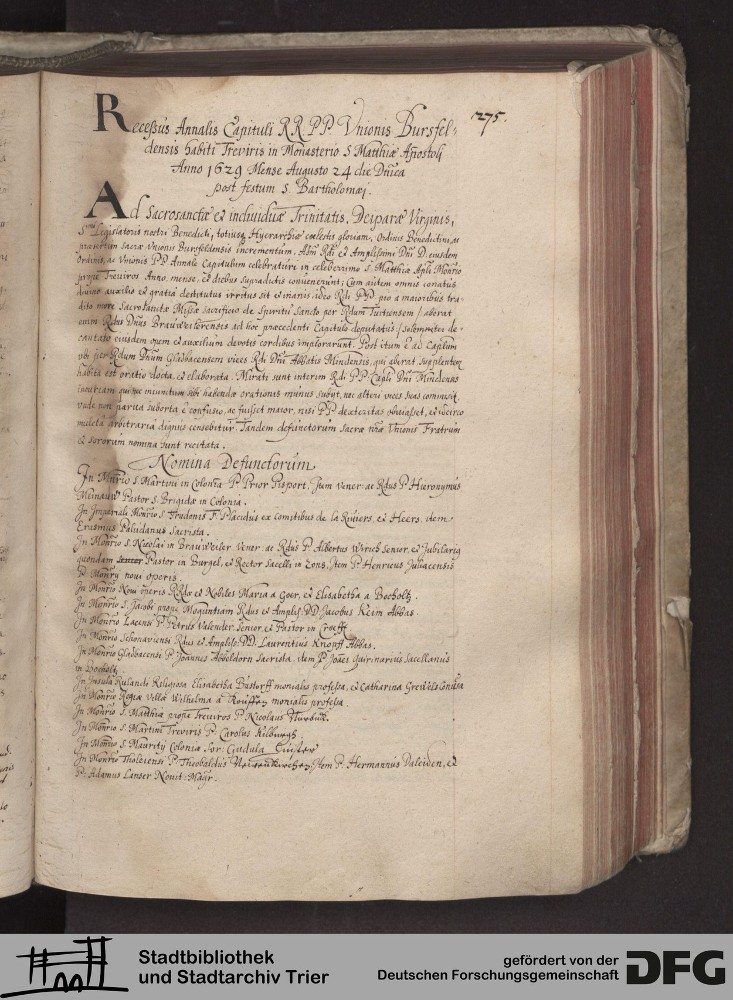 275.
Recessus Annalis Capituli RR. PP Unionis Bursfel-
densis habiti Treviris in Monasterio S Matthiæ Apostoli
Anno 1629 Mense Augusto 24 die Dnica
post festum S. Bartholomæj.
Ad Sacrosanctæ et individuæ Trinitatis, Deiparæ Virginis,
S. Legislatoris nostri Benedicti, totiusq Hyerarchiæ cœlestis gloriam, Ordinis Benedictini, ac
præsertim Sacræ Unionis Bursfeldensis incrementum. Adm Rdi et Amplissimi Dni D. eiusdem
Ordinis, ac Unionis PP Annale Capitulum celebraturi in celeberrimo S. Matthiæ Apli Monrio
prope Treviros Anno, mense, et diebus supradictis convenerunt; Cum autem omnis conatus
divino auxilio et gratia destitutus irritus sit et inanis, ideo Rdi PP. pio a maioribus tra-
dito more Sacrosanctæ Missæ Sacrificio de Spiritu Sancto per Rdum Tuitiensem /: aberat
enim Rdus Dnus Brauweilerensis ad hoc præcedenti Capitulo deputatus :/ solemniter de-
cantato eiusdem opem et auxilium devotis cordibus implorarunt. Post itum e ad Caplum
ubi per Rdum Dnum Gladbacensem vices Rdi Dni Abbatis Mindensis, qui aberat supplentem
habita est oratio docta, et elaborata. Mirati sunt interim Rdi PP. Capli Dni Mindensis
incuriam qui nec iniunctum sibi habendæ orationis munus subijt, nec alteri vices suas commisit,
unde non parva suborta e confusio, ac fuisset maior, nisi PP dexteritas obviasset, et idcirco
mulcta arbitraria dignus censebitur. Tandem defunctorum Sacræ nræ Unionis Fratrum
et sororum nomina sunt recitata.
Nomina Defunctorum
In Monrio S. Martini in Colonia P. Prior Pisport, Item Vener: ac Rdus P. Hieronymus
Pastor S. Brigidæ in Colonia.
In Imperiali Monrio S Trudonis F. Placidus ex comitibus de la Riviers, et Heers, item
Erasmus Paludanus Sacrista.
In Monrio S. Nicolai in Brauweiler Vener: ac Rdus P. Albertus Wirich Senior, et Jubilarig
quondam Pastor in Burgel, et Rector Sacelli in Zons, Item P. Henricus Juliacensis
P. Monry novi operis
In Monrio Novi operis RRdæ et Nobiles Maria a Goer, et Elisabetha a Bocholtz.
In Monrio S. Jacobi prope Moguntiam Rdus et Amplis. DD. Jacobus Keim Abbas.
In Monrio Lacensi P. Petrus Valender, Senior, et Pastor in Croefft
In Monrio Schonaviensi Rdus et Ampliss: DD. Laurentius Knopff Abbas.
In Monrio Gladbacensi P. Joannes Abbeldorn Sacrista, item P. Joães Quirinarius Sacellanus
in Bocholtz.
In Insula Rulandi Religiosa Elisabetha Bustorff monialis professa, et Catharina Conversa
In Monrio Regiæ Villæ Wilhelma a monialis professa.
In Monrio S. Matthiæ prope Treviros P. Nicolaus
In Monrio S. Martini Treviris P. Carolus Kilburgh.
In Monrio S. Mauritij Coloniæ Sor: Gudula
In Monrio Tholeiensi P. Theobaldus Item P. Hermannus Daleiden, et
P. Adamus Lanser Novit: Magr.
Stadtbibliothek
und Stadtarchiv Trier
gefördert von der
Deutschen Forschungsgemeinschaft
DFG